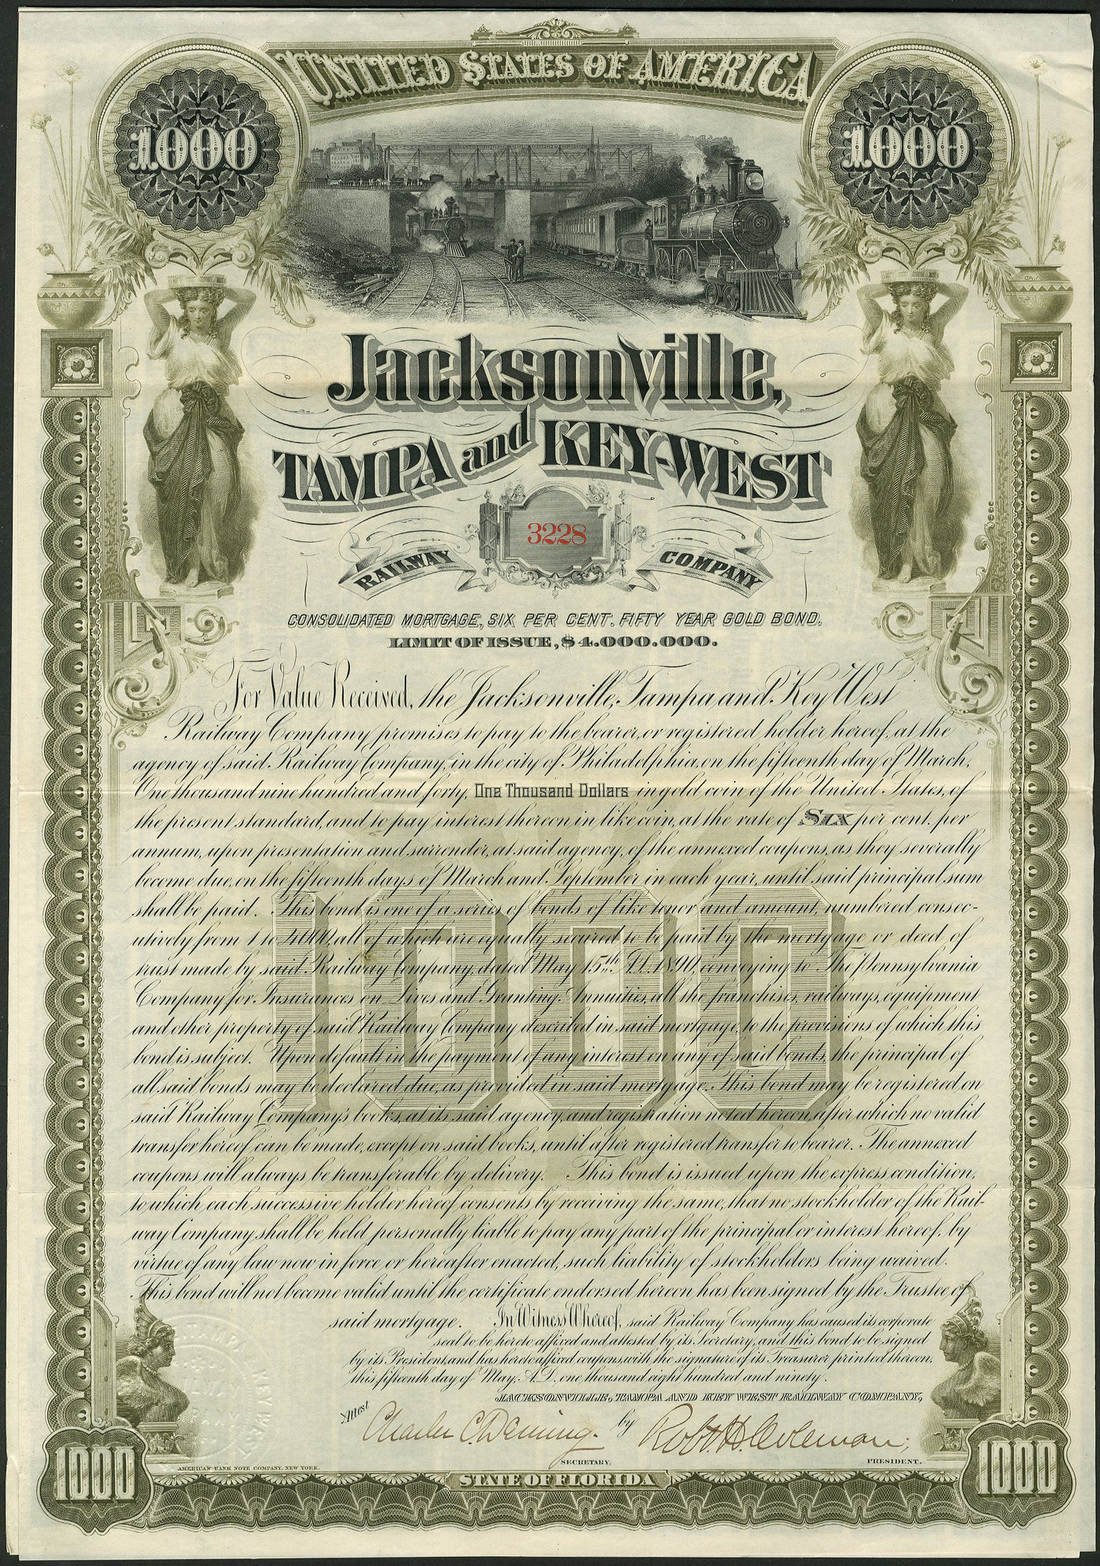 UNITED STATES OF AMERICA
1000
1000
Jacksonville,
TAMPA and KEY-WEST
3228
RAILWAY COMPANY
CONSOLIDATED MORTGAGE, SIX PER CENT. FIFTY YEAR GOLD BOND.
LIMIT OF ISSUE, $4.000.000.
For Value Received, the Jacksonville, Tampa and Key West
Railway Company, promises to pay to the bearer, or registered holder hereof, at the
agency of said Railway Company, in the city of Philadelphia, on the fifteenth day of March,
One thousand nine hundred and forty, One Thousand Dollars in gold coin of the United States, of
the present standard, and to pay interest thereon in like coin, at the rate of SIX per cent. per
annum, upon presentation and surrender, at said agency, of the annexed coupons, as they severally
become due, on the fifteenth days of March and September in each year, until said principal sum
shall be paid. This bond is one of a series of bonds of like tenor and amount, numbered consec-
utively from 1 to 4000, all of which are equally secured to be paid by the mortgage or deed of
trust made by said Railway Company, dated May 15th A.D. 1890, conveying to The Pennsylvania
Company for Insurances on Lives and Granting Annuities, all the franchises, railways, equipment
and other property of said Railway Company described in said mortgage, to the provisions of which this
bond is subject. Upon default in the payment of any interest on any of said bonds, the principal of
all said bonds may be declared due, as provided in said mortgage. This bond may be registered on
said Railway Company's books, at its said agency, and registration noted hereon, after which no valid
transfer hereof can be made, except on said books, until after registered transfer to bearer. The annexed
coupons will always be transferable by delivery. This bond is issued upon the express condition,
to which each successive holder hereof consents by receiving the same, that no stockholder of the Rail-
way Company shall be held personally liable to pay any part of the principal or interest hereof, by
virtue of any law now in force or hereafter enacted, such liability of stockholders being waived.
This bond will not become valid until the certificate endorsed hereon has been signed by the Trustee of
said mortgage. In Witness Whereof, said Railway Company has caused its corporate
seal to be hereto affixed and attested by its Secretary, and this bond to be signed
by its President, and has hereto affixed coupons with the signature of its Treasurer printed thereon,
this fifteenth day of May, A.D. one thousand eight hundred and ninety.
JACKSONVILLE, TAMPA AND KEY WEST RAILWAY COMPANY,
Attest Charles C. Deming. by Robt H. Coleman,
SECRETARY. PRESIDENT.
AMERICAN BANK NOTE COMPANY, NEW YORK.
1000
STATE OF FLORIDA
1000
1000